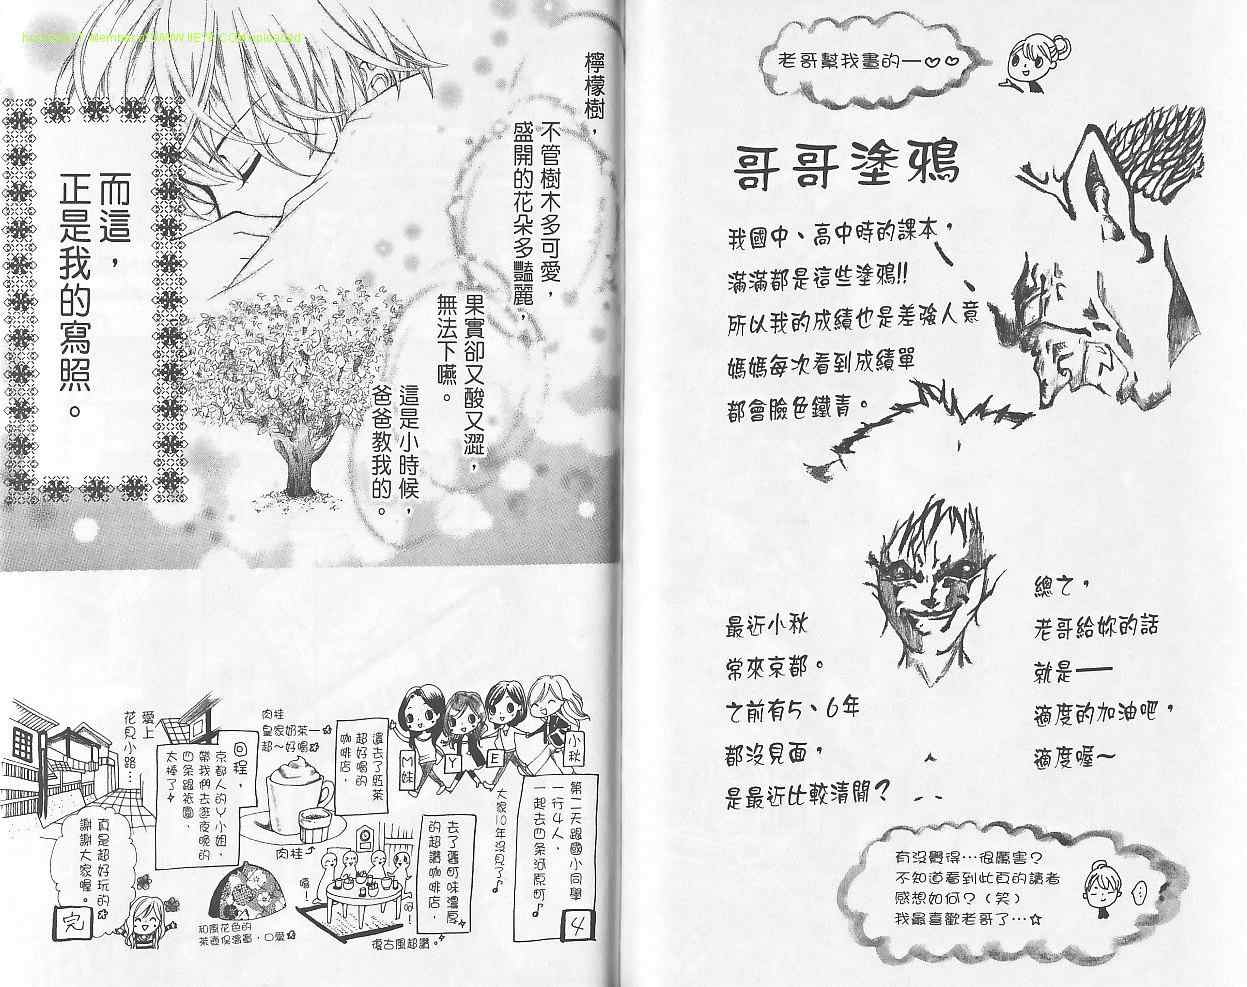 老哥幫我畫的—♡♡
哥哥塗鴉
我國中、高中時的課本，
滿滿都是這些塗鴉!!
所以我的成績也是差強人意
媽媽每次看到成績單
都會臉色鐵青。
總之，
老哥給妳的話
就是——
適度的加油吧，
適度喔～
最近小秋
常來京都。
之前有5、6年
都沒見面，
是最近比較清閒？
有沒覺得…很厲害？
不知道看到此頁的讀者
感想如何？（笑）
我最喜歡老哥了…☆
檸檬樹，
不管樹木多可愛，
盛開的花朵多豔麗，
果實卻又酸又澀，
無法下嚥。
這是小時候，
爸爸教我的。
而這，
正是我的寫照。
小秋
E
Y
M妹
4
第二天跟國小同學
一行4人，
一起去四条河原町♪
大家10年沒見了♪
去了舊町味濃厚
的超讚咖啡店，
復古風超讚。
嗯！
喔！
還去了紅茶
超好喝的
咖啡店，
肉桂
皇家奶茶—
超～好喝
肉桂
和風花色的
茶壺保溫罩，口愛
回程，
京都人的Y小姐，
帶我們去逛夜晚的
四条跟祇園，
太棒了
愛上
花見小路…
真是超好玩的
謝謝大家喔。
完